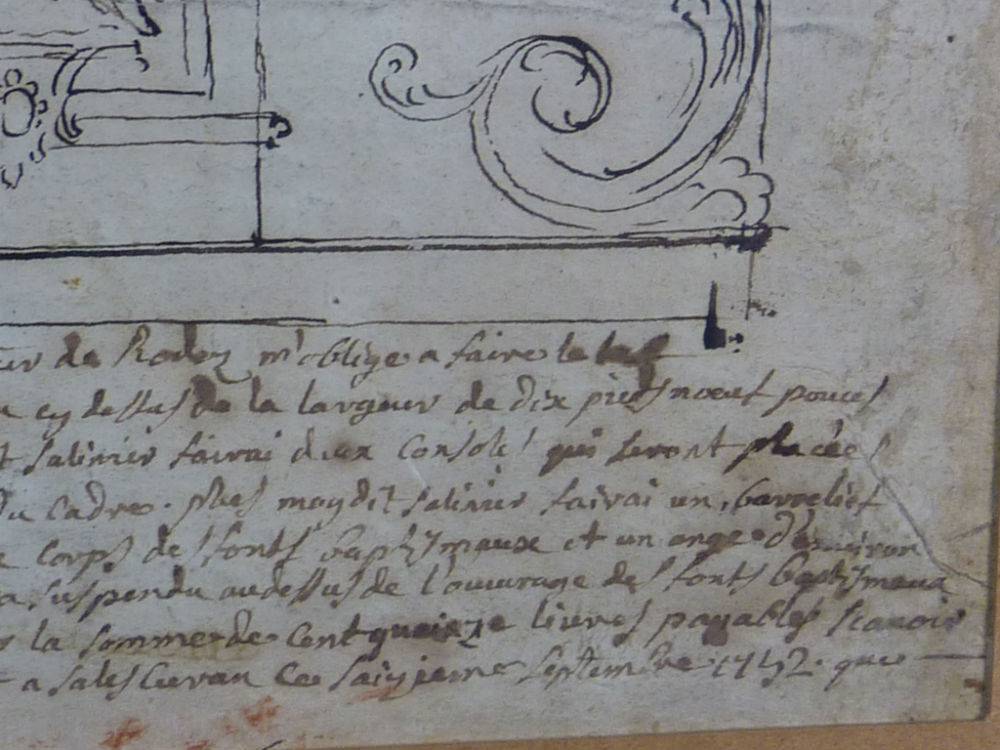 de Rodez m'oblige a faire le
cy dessus de la largeur de dix pieds noeuf pouces
salinier fairai deux consoles qui seront placées
du cadre. plus moydit salinier fairai un barrelief
corps des fonts baptismaux et un ange d'emviron
suspendu audessus de l'ouvrage des fonts baptismaux
la somme de cent quainze livres payables scavoir
a salescuran ce saizieme septembre 1752. que